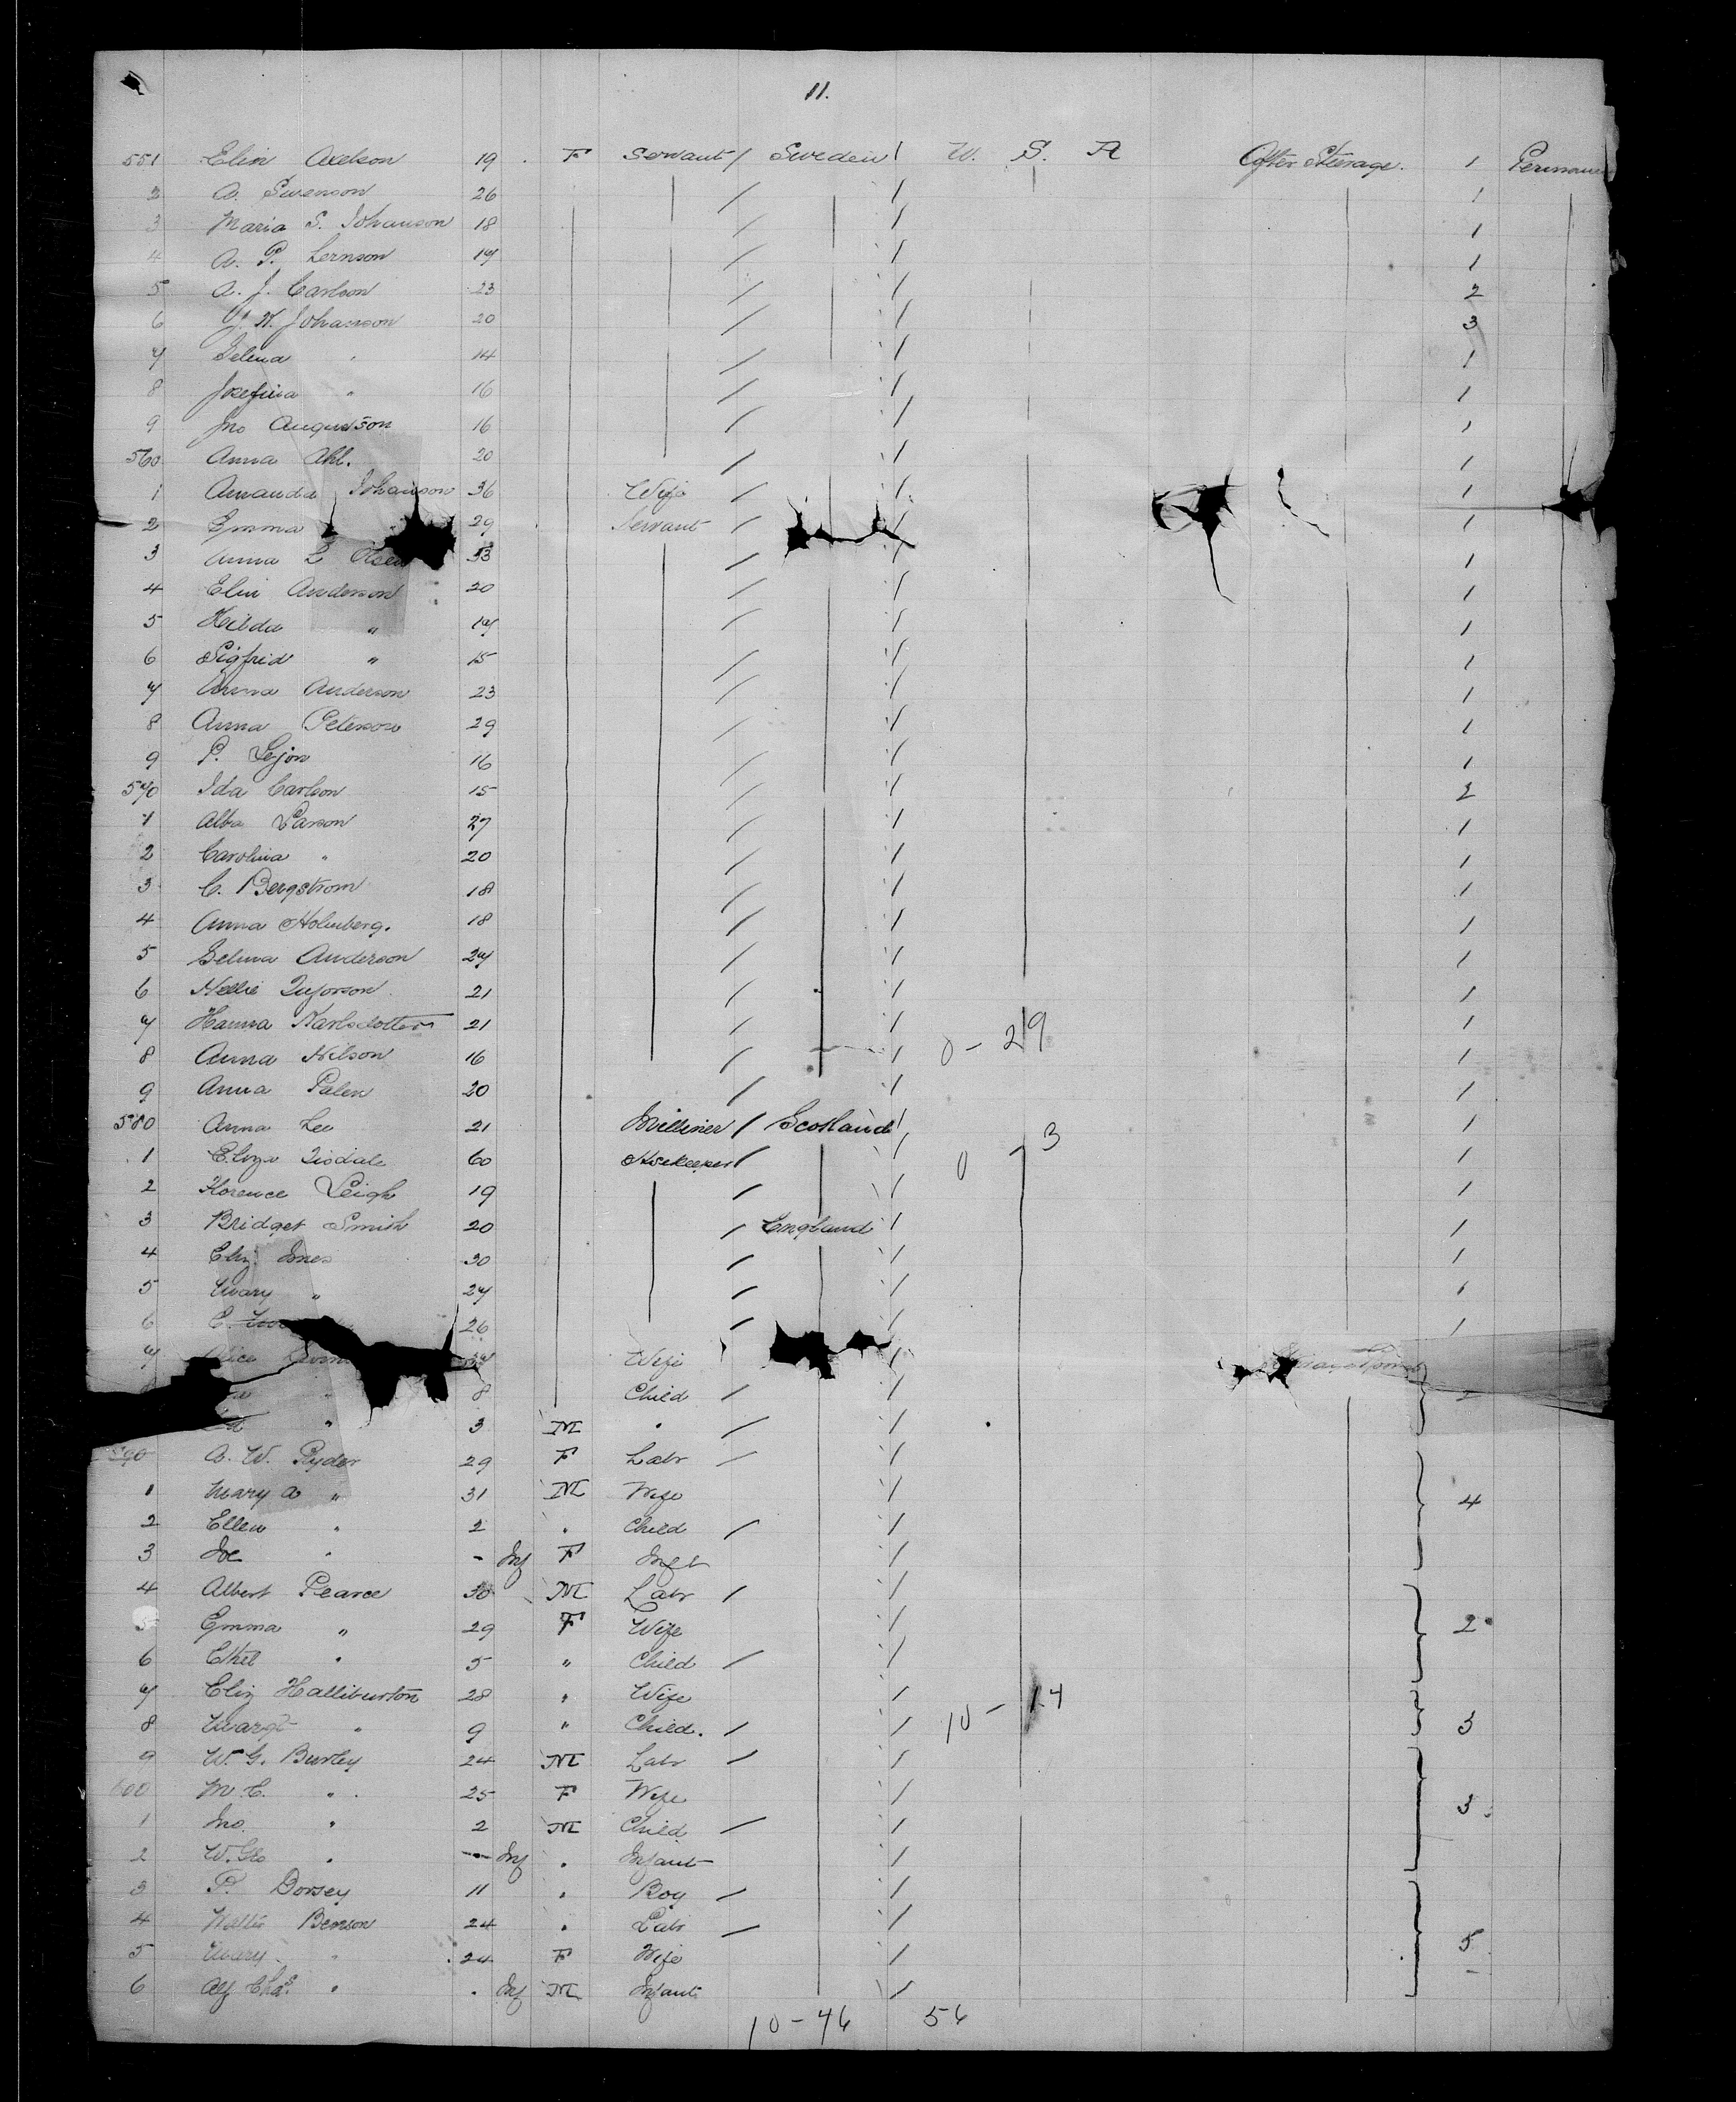 11.
551 Elin Axelson 19 F Servant / Sweden / U. S. A After Steerage. 1
2 A. Swenson 26 / / 1
3 Maria S. Johanson 18 / / 1
4 A. P. 17 / / 1
5 A. J. Carlson 23 / / 2
6 Johanson 20 / / 3
7 Selma " 14 / / 1
8 Josefina " 16 / / 1
9 Jno Auguson 16 / / 1
560 Anna Ahl. 20 / / 1
1 Amanda Johanson 36 Wife / / 1
2 Emma 29 Servant / / 1
3 Anna L Olsen 33 / / 1
4 Elin Anderson 20 / / 1
5 Hilda " 17 / / 1
6 Sigfrid " 15 / / 1
7 Anna Anderson 23 / / 1
8 Anna Peterson 29 / / 1
9 P. Lejon 16 / / 1
570 Ida Carlson 15 / / 2
1 Alba Larson 27 / / 1
2 Carolina " 20 / / 1
3 C. Bergstrom 18 / / 1
4 Anna Holmberg. 18 / / 1
5 Selma Anderson 27 / / 1
6 Nellie 21 / / 1
7 Hanna Karlsdotter 21 / / 1
8 Anna Nilson 16 / / 0 - 29 1
9 Anna Palen 20 / / 1
580 Anna Lee 21 Milliner / Scotland / 1
1 Eliza Tisdale 60 Hsekeeper / / 0 - 3 1
2 Florence Leigh 19 / / 1
3 Bridget Smith 20 / England / 1
4 Eliz. Jones 30 / / 1
5 Mary " 27 / / 1
6 E. 26 / / 1
7 Alice Wife / /
" 8 Child / / 2
" 3 M " / /
590 A. W. Ryder 29 F Labr / /
1 Mary A " 31 M Wife / 4
2 Ellen " 2 " Child / /
3 " - Inf F Inft /
4 Albert Pearce 30 M Labr / /
5 Emma " 29 F Wife / 2
6 Ethel " 5 " Child / /
7 Eliz Halliburton 28 " Wife /
8 Margt " 9 " Child. / / 10 - 14 3
9 W. G. Burley 24 M Labr / /
600 M. C. " 25 F Wife / 3
1 Jno. " 2 M Child / /
2 W. Geo " - Inf " Infant /
3 P. Dorsey 11 " Boy / /
4 Benson 24 " Labr / /
5 Mary " 24 F Wife / 5
6 Alf Chas. " Inf M Infant /
10 - 46 56